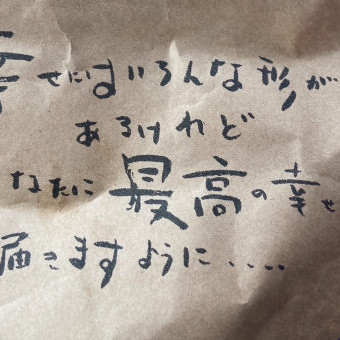 幸せにはいろんな形が
あるけれど
なたに最高の幸せ
届きますように....